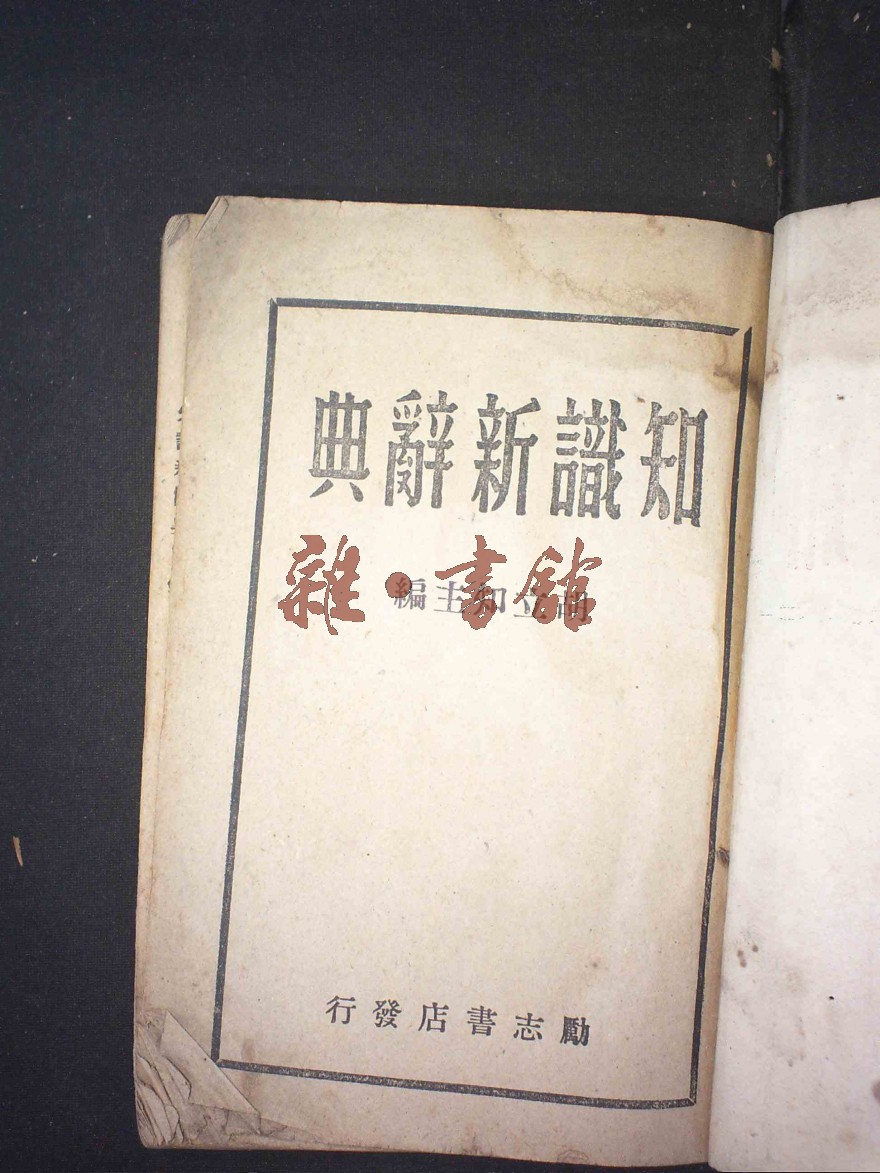 知識新辭典
胡立知主編
雜·書館
勵志書店發行